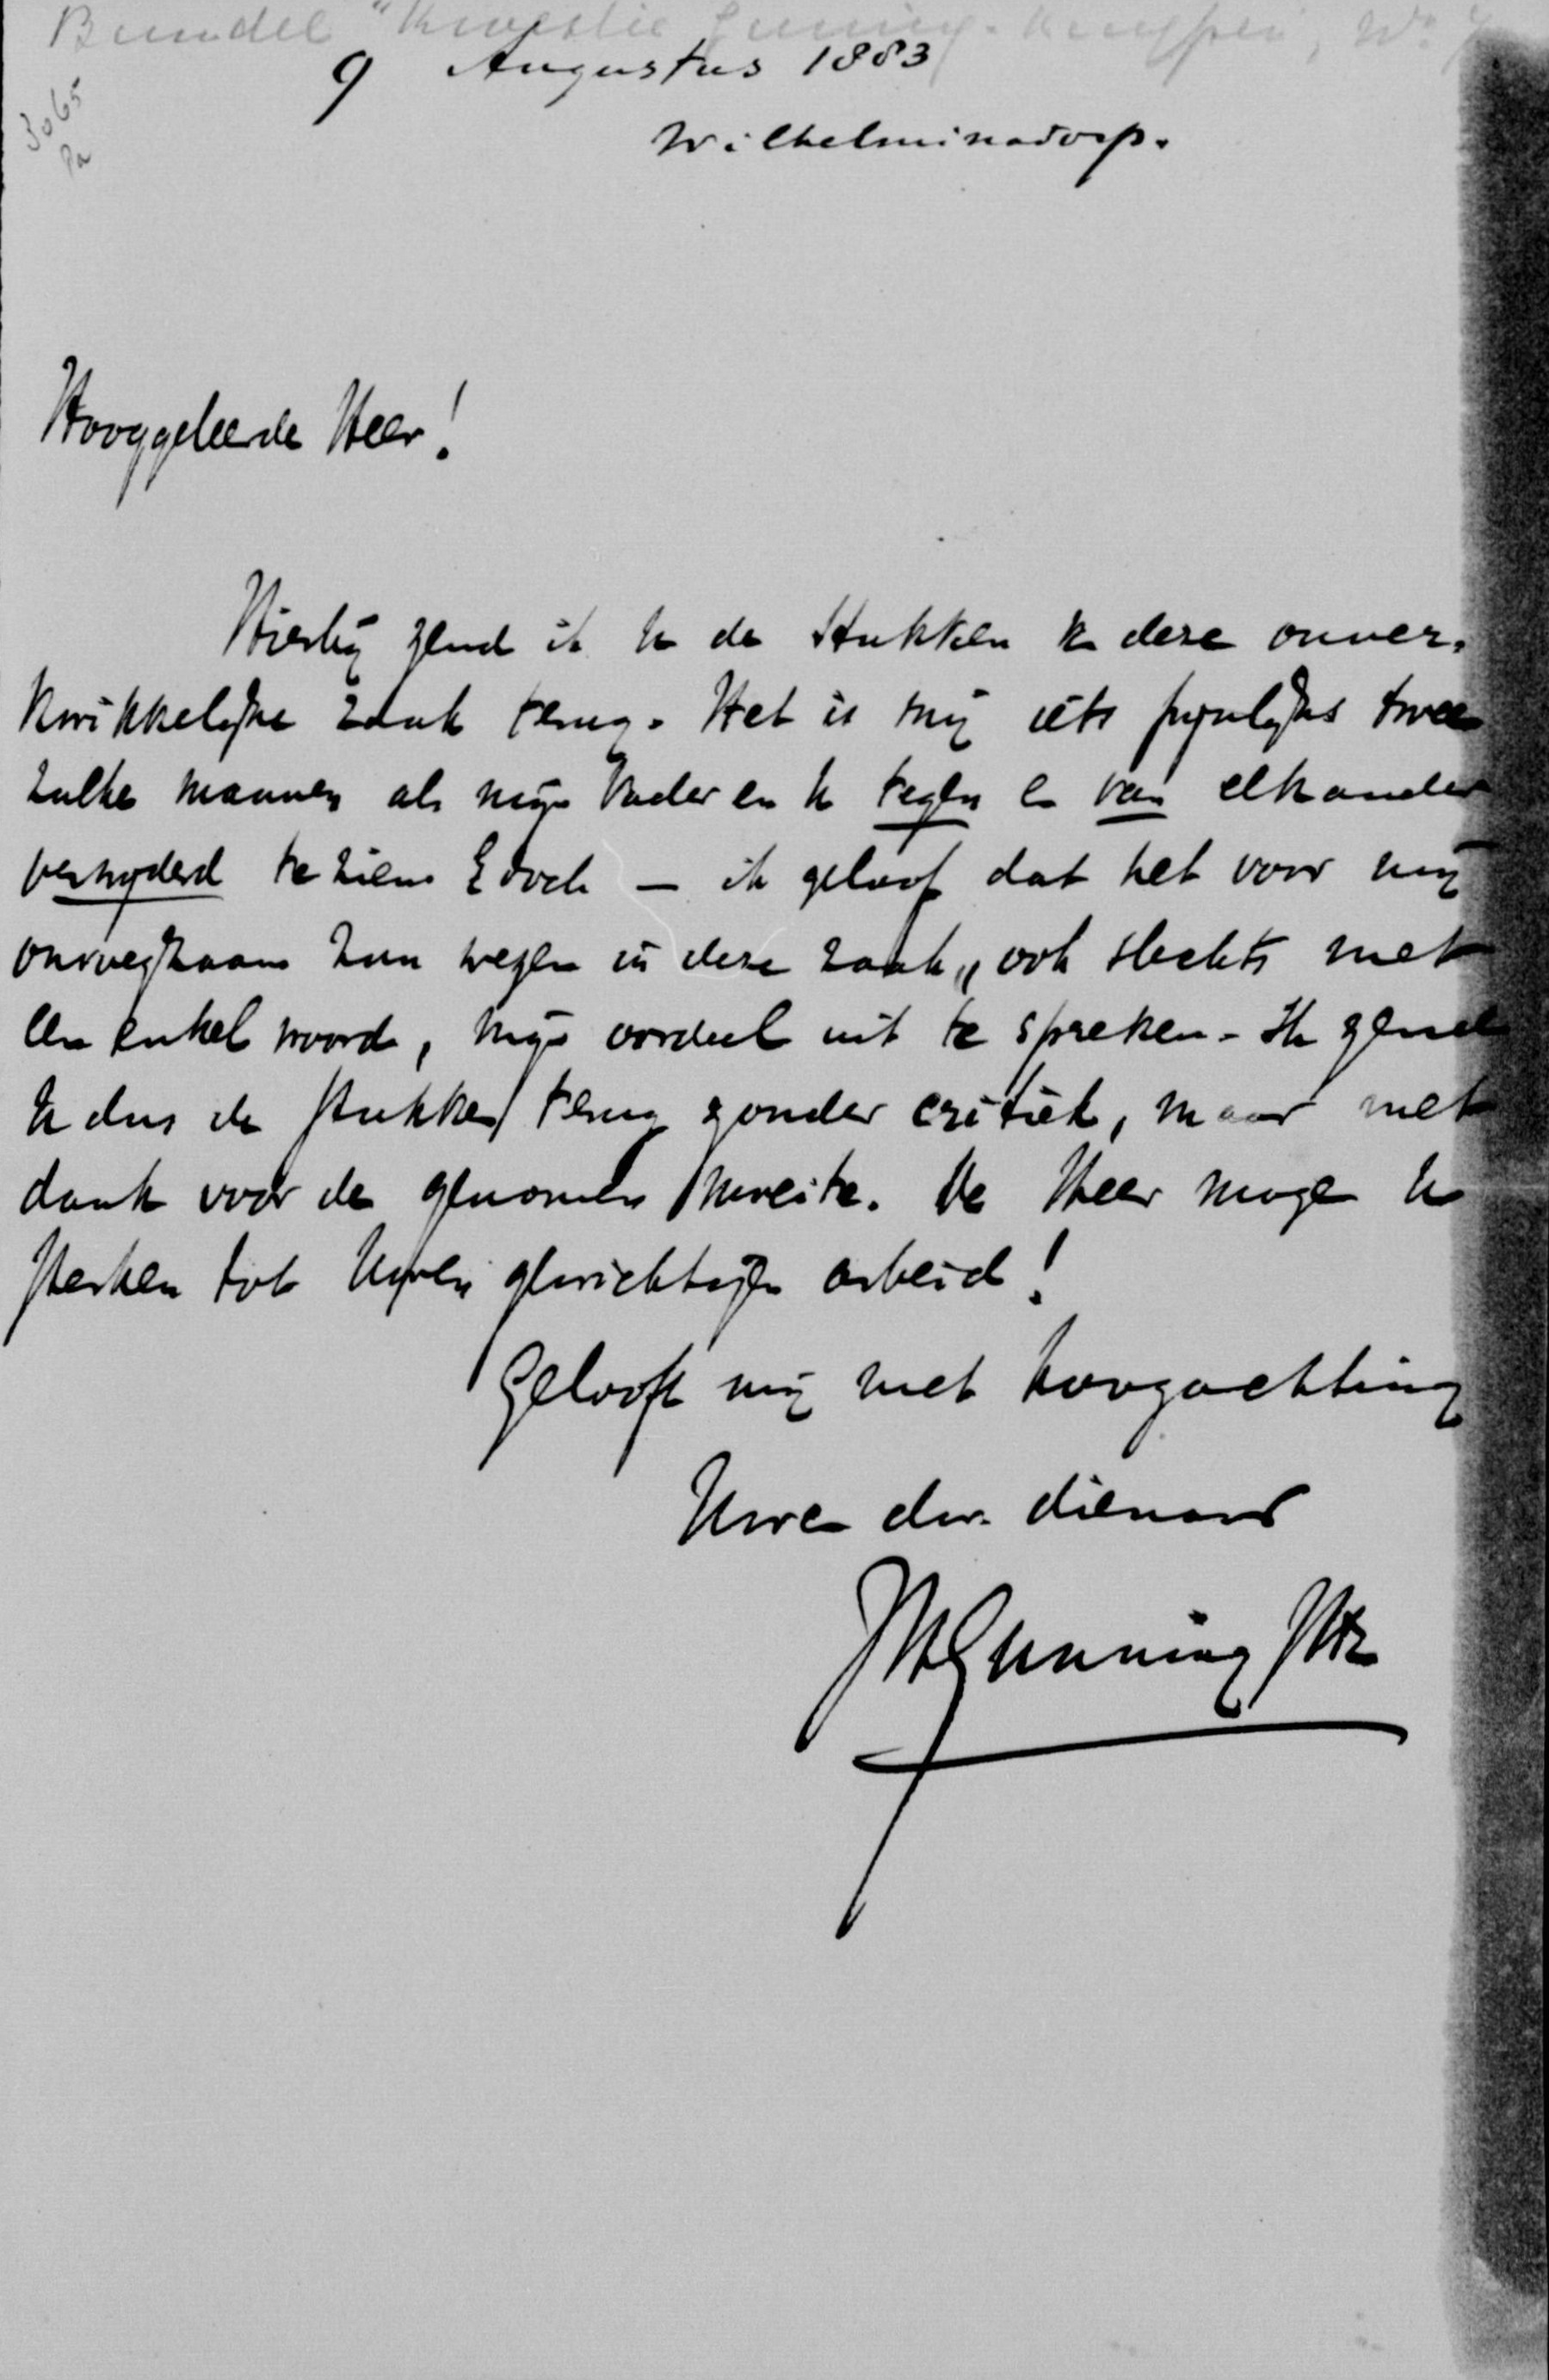 Bundel "Kwestie Gunning-
9 Augustus 1883
3065
Pa
Wilhelminadorp.
Hooggeleerde Heer!
Hierbij zend ik U de stukken in deze onver-
kwikkelijke zaak terug. Het is mij iets pijnlijks twee
zulke mannen als mijn Vader en U tegen en van elkander
verwijderd te zien. Edoch — ik geloof dat het voor mij
onvoegzaam zou wezen in deze zaak, ook slechts met
een enkel woord, mijn oordeel uit te spreken. Ik zend
U dus de stukken terug zonder critiek, maar met
dank voor de genomen moeite. De Heer moge U
sterken tot Uwen gewichtigen arbeid!
Gelooft mij met hoogachting
Uwen dw. dienaar
JHGunning JHz